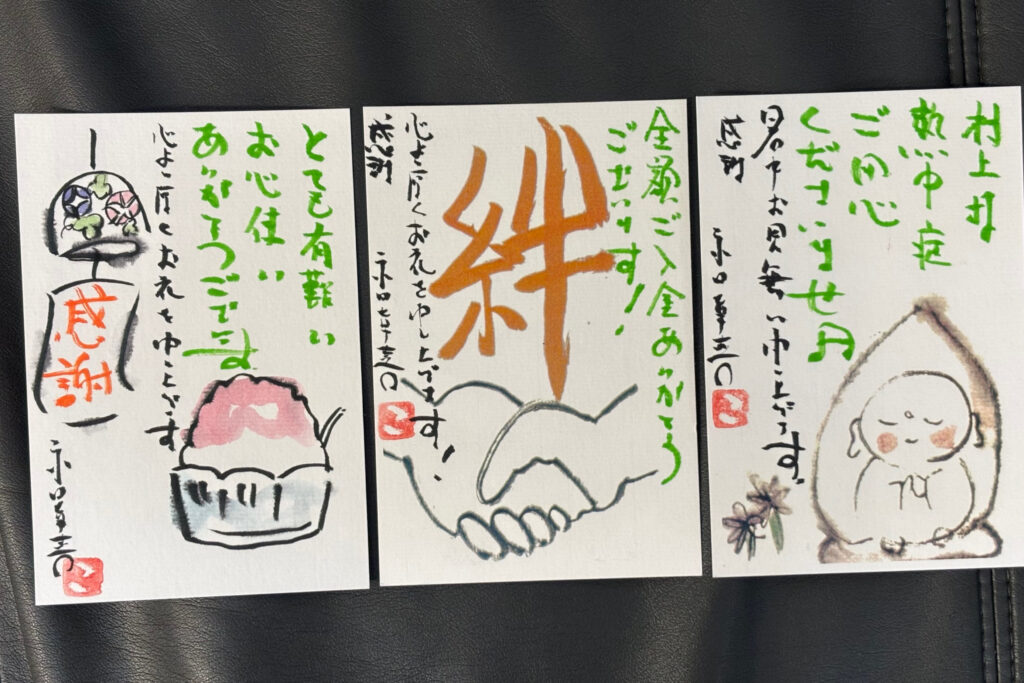 村上様
熱中症
ご用心
くださいませ
暑中お見舞い申し上げます
感謝
絆
全額ご入金ありがとう
ございます!
心より厚くお礼を申し上げます!
感謝
とても有難い
お心使い
ありがとうございます
心より厚くお礼を申し上げます
感謝